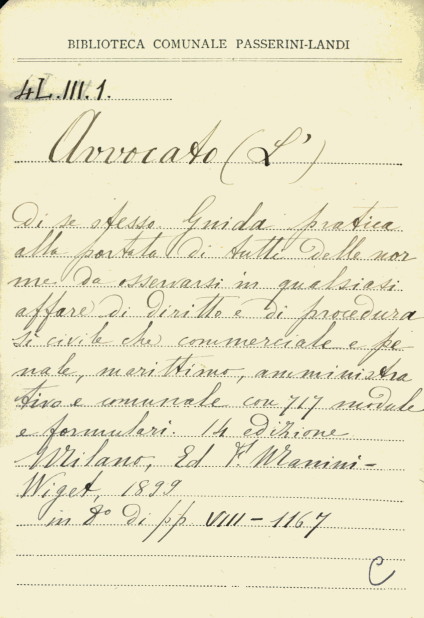 BIBLIOTECA COMUNALE PASSERINI-LANDI
4L.III.1.
Avvocato (L')
di se stesso. Guida pratica
alla portata di tutti delle nor
me da osservarsi in qualsiasi
affare di diritto e di procedura
sì civile che commerciale e pe-
nale, marittimo, amministra
tivo e comunale con 717 module
e formulari. 14 edizione
Milano, Ed F. Manini-
Wiget, 1899
in 8° di pp VIII-1167
C